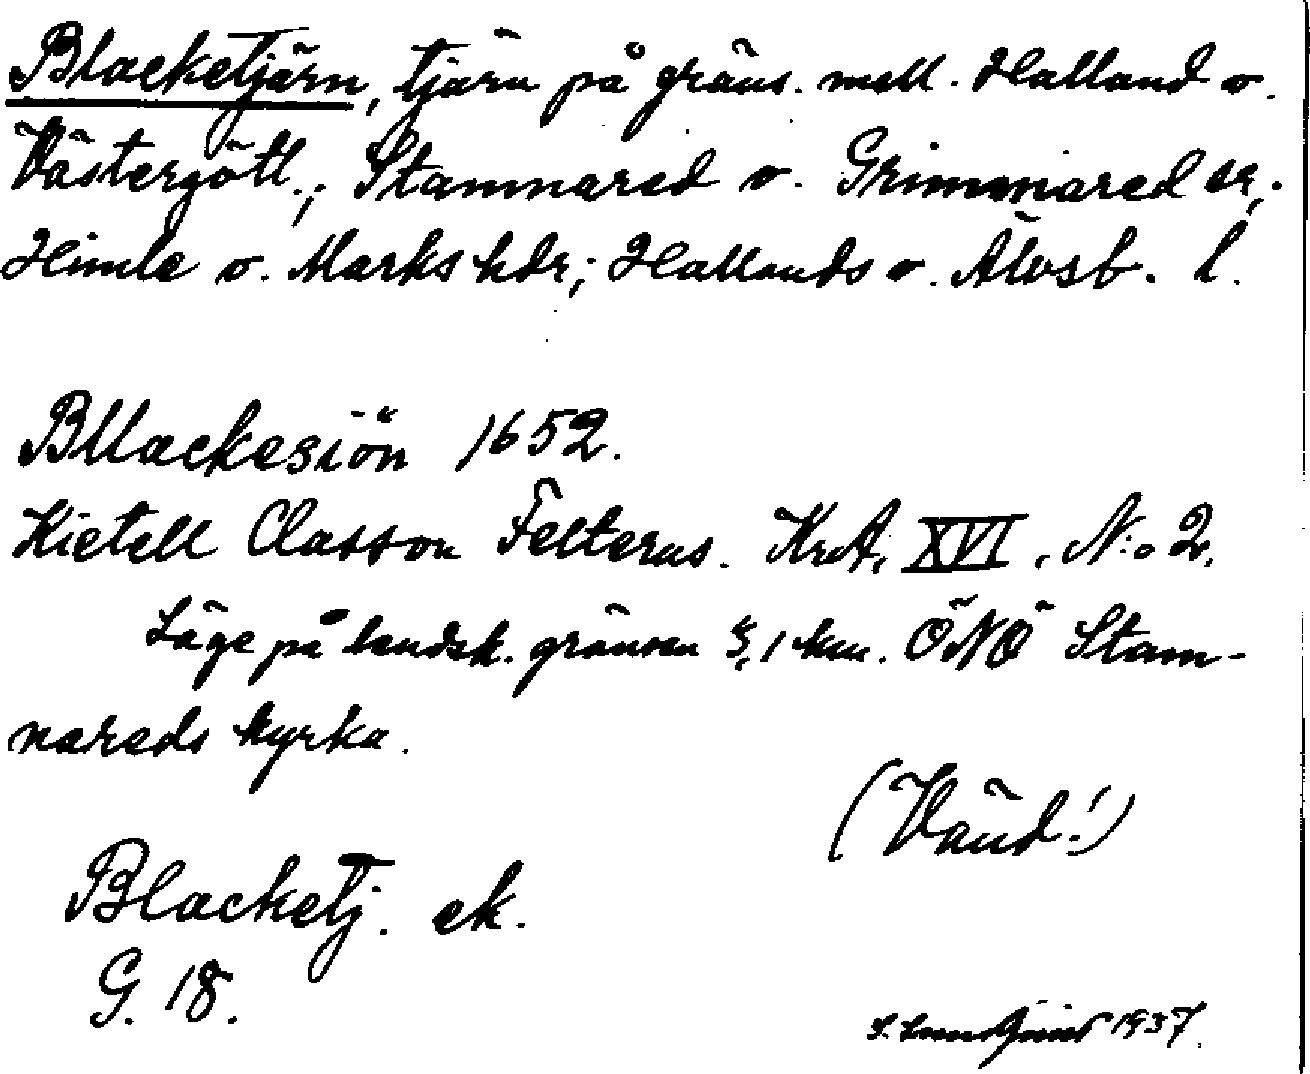 Blacketjärn, tjärn på gräns. mell. Halland o.
Västergötl.; Stamnared o. Grimmared sr;
Himle o. Marks hdr; Hallands o. Älvsb. l.
Bllackesiön 1652.
Kietell Classon Felterus. KrA. XVI, N:o 2.
Läge på landsk. gränsen 5,1 km. ÖNÖ Stam-
nareds kyrka.
(Vänd!)
Blacketj. ek.
G. 18.
S. Lundquist 1937.